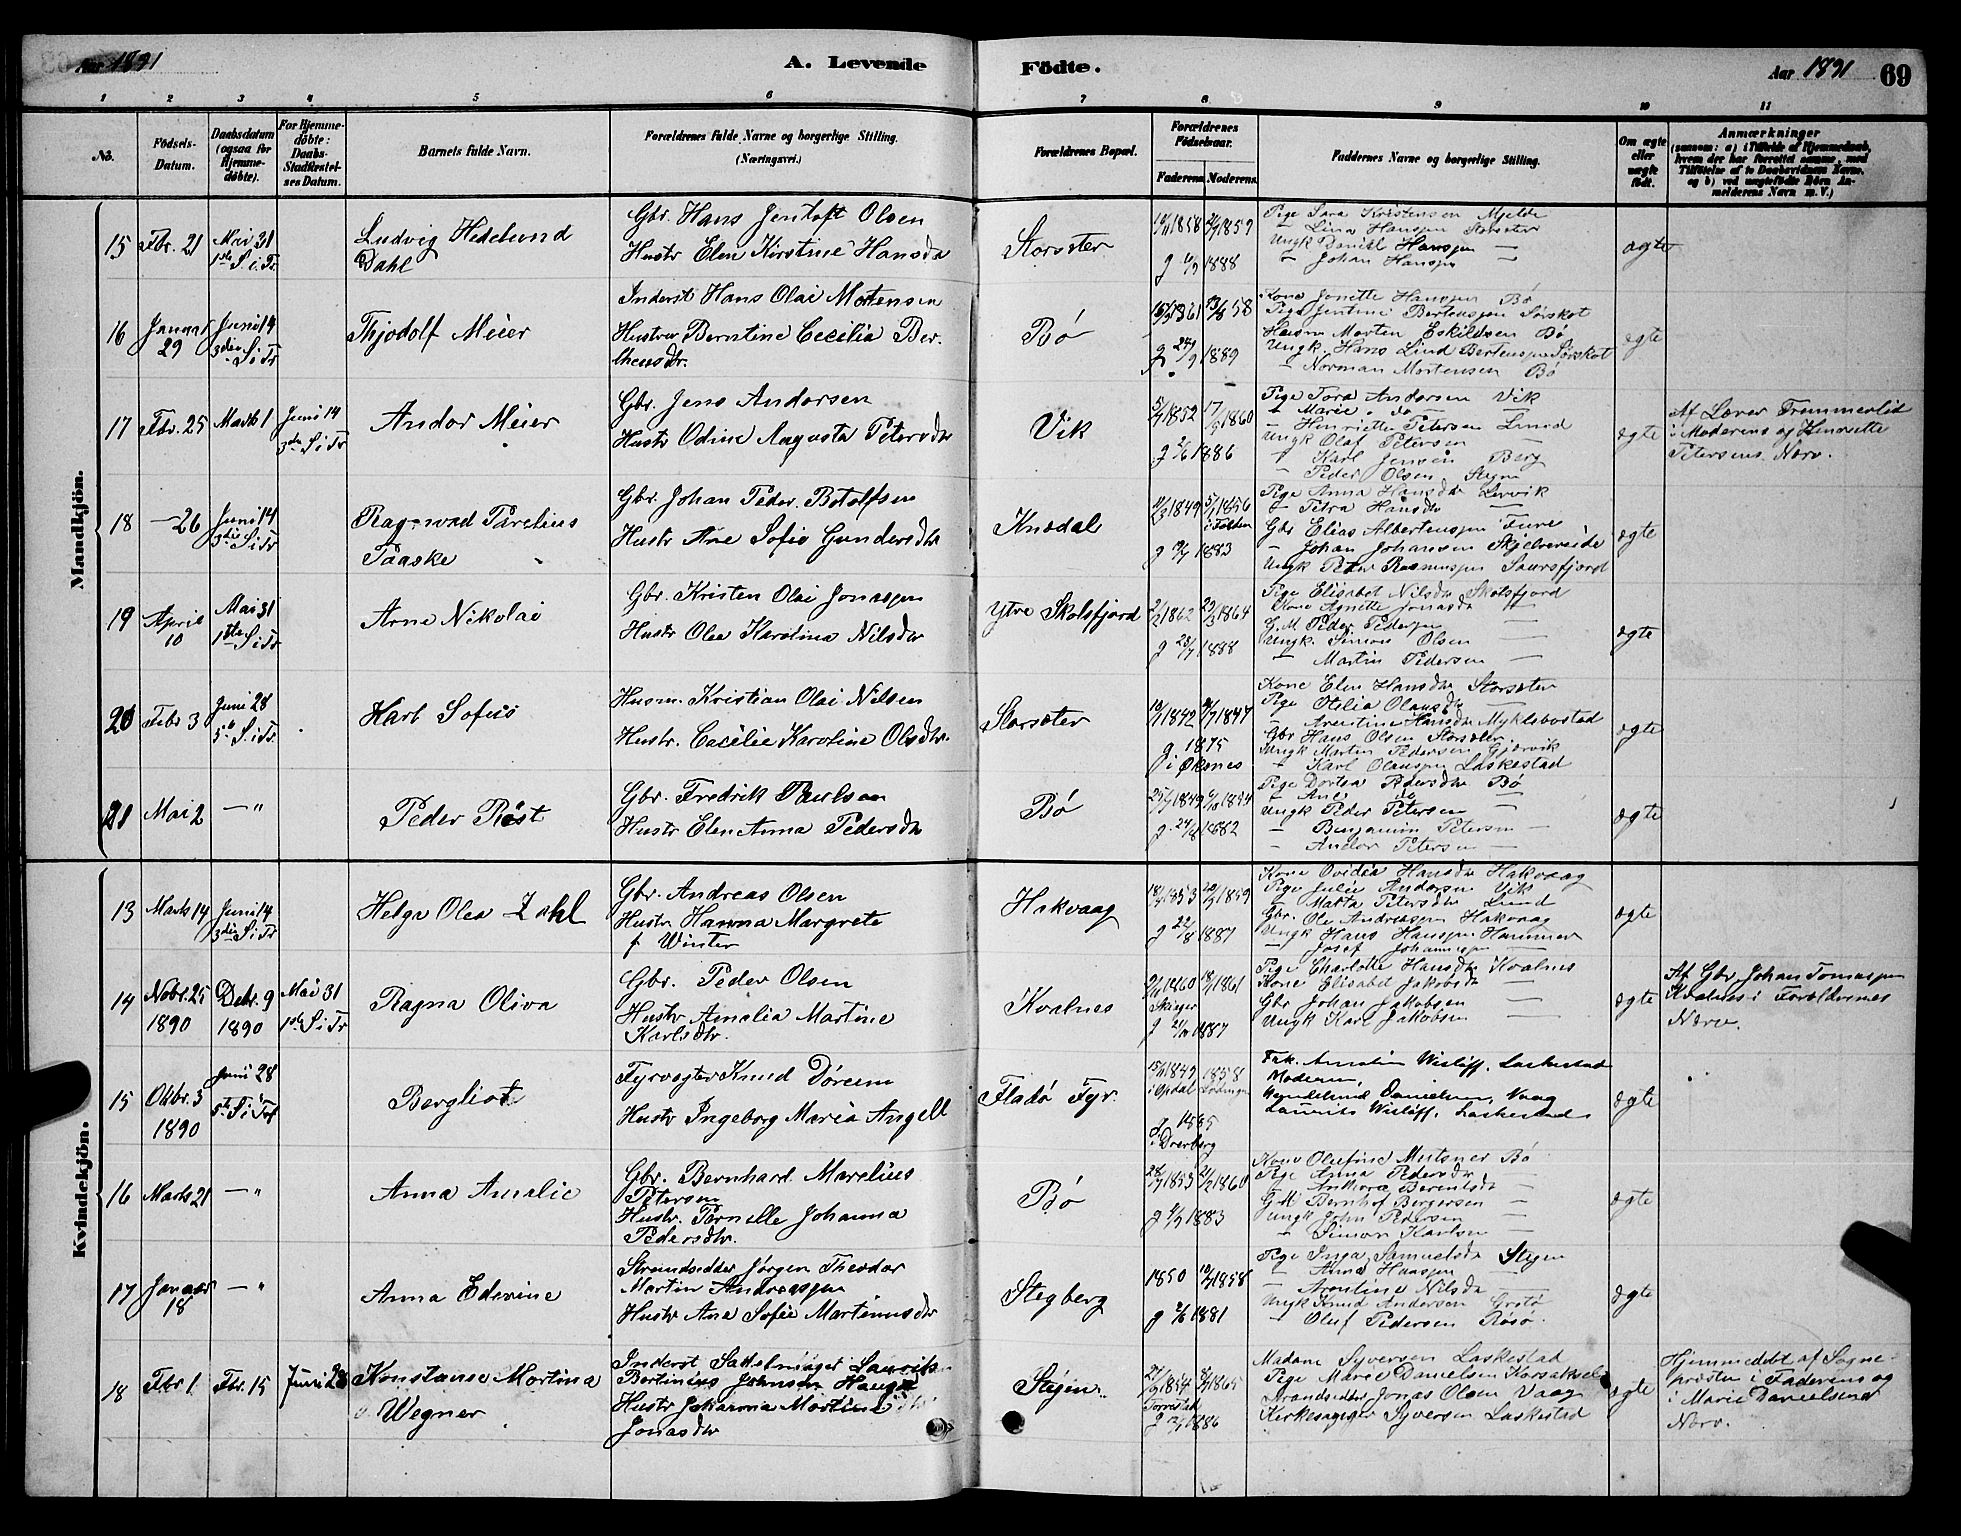 Aar 1891
A. Levende
Födte.
Aar 1891
69
1 2 3 4 5 6 7 8 9 10 11
No.
Födsels-Datum.
Daabsdatum (ogsaa for Hjemme-döbte).
For Hjemme-döbte: Daabs-Stadfæstelses Datum.
Barnets fulde Navn.
Forældrenes fulde Navne og borgerlige Stilling. (Næringsvei.)
Forældrenes Bopæl.
Forældrenes Födselsaar.
Faderens. Moderens.
Faddernes Navne og borgerlige Stilling.
Om ægte eller uægte födt.
Anmærkninger
Mandkjön.
15 Fbr. 21 Mai 31 1ste S. i. Tr
Ludvig Hedelund
Dahl
Gbr. Hans Jentoft Olsen
Hustr Elen Kirstine Hansdr
Storsæter
1858 1859
g 1888
Pige Sara Kristensen Mjelde
— Lina Hansen Storsæter
Ungk Daniel Hansen —
— Johan Hansen —
ægte
16 Januar 29 Juni 14 3die S i Tr
Thjodolf Meier
Inderst Hans Olai Mortensen
Hustru Berntine Cecilia Ber-
theusdr.
Bø
g 24/9 1889
Kone Jonette Hansen Bø
Pige Jentine Bertensen Sørskot
Husm Morten Eskildsen Bø
Ungk. Hans Lind Bertensen Sørskot
— Norman Mortensen Bø
ægte
17 Fbr. 25 Marts 1 Juni 14 3die S i Tr
Andor Meier
Gbr. Jens Andersen
Hustr Odine Augusta Petersdr
Vik
1852 1860
g 1886
Pige Tora Andersen Vik
— Marie do —
— Henriette Petersen Lund
Ungk Olaf Petersen —
— Karl Jensen Berg
— Peder Olsen Stejn
ægte
Af Lærer Tremmerlid
i Moderens og Henriette
Petersens Nærv.
18 — 26 Juni 14 3die S i Tr
Ragnvad Parelius
Paaske
Gbr. Johan Peder Botolfsen
Hustr Ane Sofie Gundersdr
Knædal
1849 1856
i Folden
g 1883
Pige Anna Hansdr Lervik
— Petra Hansdr —
Gbr Elias Albertensen Fure
— Johan Johansen Skjelvereide
Ungk Peter Rasmussen Saursfjord
ægte
19 April 10 Mai 31 1ste S i Tr
Arne Nikolai
Gbr. Kristen Olai Jonassen
Hustr Olea Karolina Nilsdr
Ytre Skotsfjord
1862 1864
g 1888
Pige Elisabet Nilsdr Skotsfjord
Kone Agnette Jonasdr —
G.M Peder Pedersen —
Ungk. Simon Olsen —
— Martin Pedersen —
ægte
20 Fbr 3 Juni 28 5te S. i Tr
Karl Sofus
Husm. Kristian Olai Nilsen
Hustr. Cecilie Karoline Olsdtr.
Storsæter
1842 1847
g 1875
i Øksnes
Kone Elen Hansdr Storsæter
Pige Otilia Olausdr —
— Arentine Hansdr Myklebostad
Gbr Hans Olsen Storsæter
Ungk Martin Pedersen Gjærvik
— Karl Olausen Laskestad
ægte
21 Mai 2 — "
Peder Röst
Gbr. Fredrik Paulsen
Hustr Elen Anna Pedersdr
Bø
1849 1854
g. 24/8 1882
Pige Dortea Pedersdr Bø
— Ane do —
Ungk Peder Petersen —
— Benjamin Petersen —
— Andor Petersen —
ægte
Kvindekjön.
13 Marts 14 Juni 14 3die S i Tr
Helga Olea Zahl
Gbr. Andreas Olsen
Hustr Hanna Margrete
f. Winter
Hakvaag
1853 1859
g 22/8 1887
Kone Ovidia Hansdr Hakvaag
Pige Julie Andersen Vik
— Marta Petersdr Lund
Gbr. Ole Andreassen Hakvaag
Ungk Hans Hansen Hammer
— Josef Johannessen —
ægte
14 Novbr. 25 1890 Debr. 9 1890 Mai 31 1ste S i Tr
Ragna Oliva
Gbr. Peder Olsen
Hustr Amalia Martine
Karlsdtr.
Kvalnes
1860 1861
g 1887
Pige Charlotte Hansdr Kvalnes
Kone Elisabet Jakobsdr —
Gbr Johan Jakobsen —
Ungk Karl Jakobsen —
ægte
Af Gbr Johan Tomassen
Kvalnes i Forældrenes
Nærv.
15 Oktbr. 3 1890 Juni 28 5te S i Tr
Bergliot
Fyrvogter Knud Döreem
Hustr Ingeborg Maria Angell
Fladö Fyr.
1849 1858
i Opdal
g. 1885
Frk. Amalia Wisløff, Laskestad
Moderen,
Hyndelund Danielsen, Vaag
Laurits Wisløff, Laskestad
ægte
16 Marts 21 — "
Anna Amalie
Gbr. Bernhard Marelius
Petersen
Hustr. Pernille Johanna
Pedersdtr.
Bø
1853 1860
g 1883
Kone Olufine Mutsner Bø
Pige Anna Pedersdr —
— Ankora Berentsdr —
G M Bernhof Bergersen —
Ungk John Pedersen —
— Simon Karlsen —
ægte
17 Januar 18 — "
Anna Edevine
Strandsidder Jørgen Theodor
Martin Andreassen
Hustr Ane Sofie Martinusdr
Stegberg
1850 1858
g 1881
Pige Inga Samuelsdr Stejen
— Anna Hansen —
— Arontine Nilsdr —
Ungk Knud Andersen Grøtø
— Oluf Pedersen Røsø.
ægte
18 Fbr 1. Fbr. 15 Juni 28
Konstanse Martina
Wegner
Inderst Sadelmager Laurits
Bertinius Johnsen Haugen
Hustr Jakarina Martine
Jonasdr
Stejen.
1854 1865
g 1886
Madam Syversen Laskestad
Pige Marie Danielsen Korsøksel
Strandsidder Jonas Olsen Vaag
Kirkesanger Syversen Laskestad
ægte
Hjemmedøbt af Sogne-
præsten i Faderens og
i Marie Danielsens
Nærv.